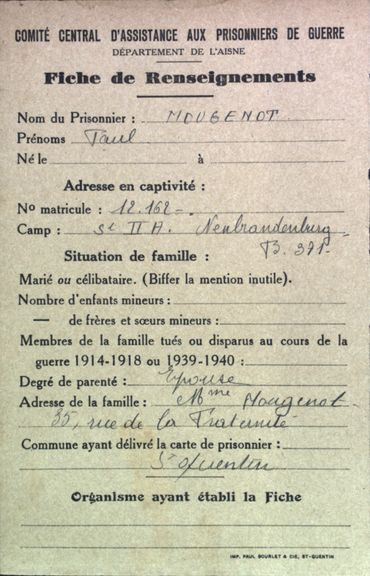 COMITÉ CENTRAL D'ASSISTANCE AUX PRISONNIERS DE GUERRE
DÉPARTEMENT DE L'AISNE
Fiche de Renseignements
Nom du Prisonnier : MOUGENOT
Prénoms Paul
Né le à
Adresse en captivité :
No matricule : 12.162
Camp : St II A. Neubrandenburg
B. 371
Situation de famille :
Marié ou célibataire. (Biffer la mention inutile).
Nombre d'enfants mineurs :
— de frères et sœurs mineurs :
Membres de la famille tués ou disparus au cours de la
guerre 1914-1918 ou 1939-1940 :
Degré de parenté : Epouse
Adresse de la famille : Mme Mougenot
35, rue de la Fraternité
Commune ayant délivré la carte de prisonnier :
St Quentin
Organisme ayant établi la Fiche
IMP. PAUL BOURLET & CIE, ST-QUENTIN